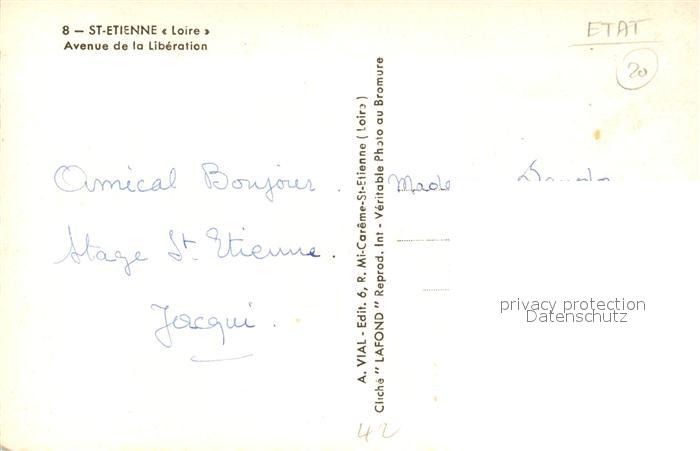 8 — ST-ETIENNE « Loire »
Avenue de la Libération
ETAT
20
Amical Bonjour.
Stage St. Etienne.
Jacqui.
A. VIAL - Edit. 6, R. Mi-Carême-St-Etienne (Loire)
Cliché " LAFOND " Reprod. Int - Véritable Photo au Bromure
Made
privacy protection
Datenschutz
42